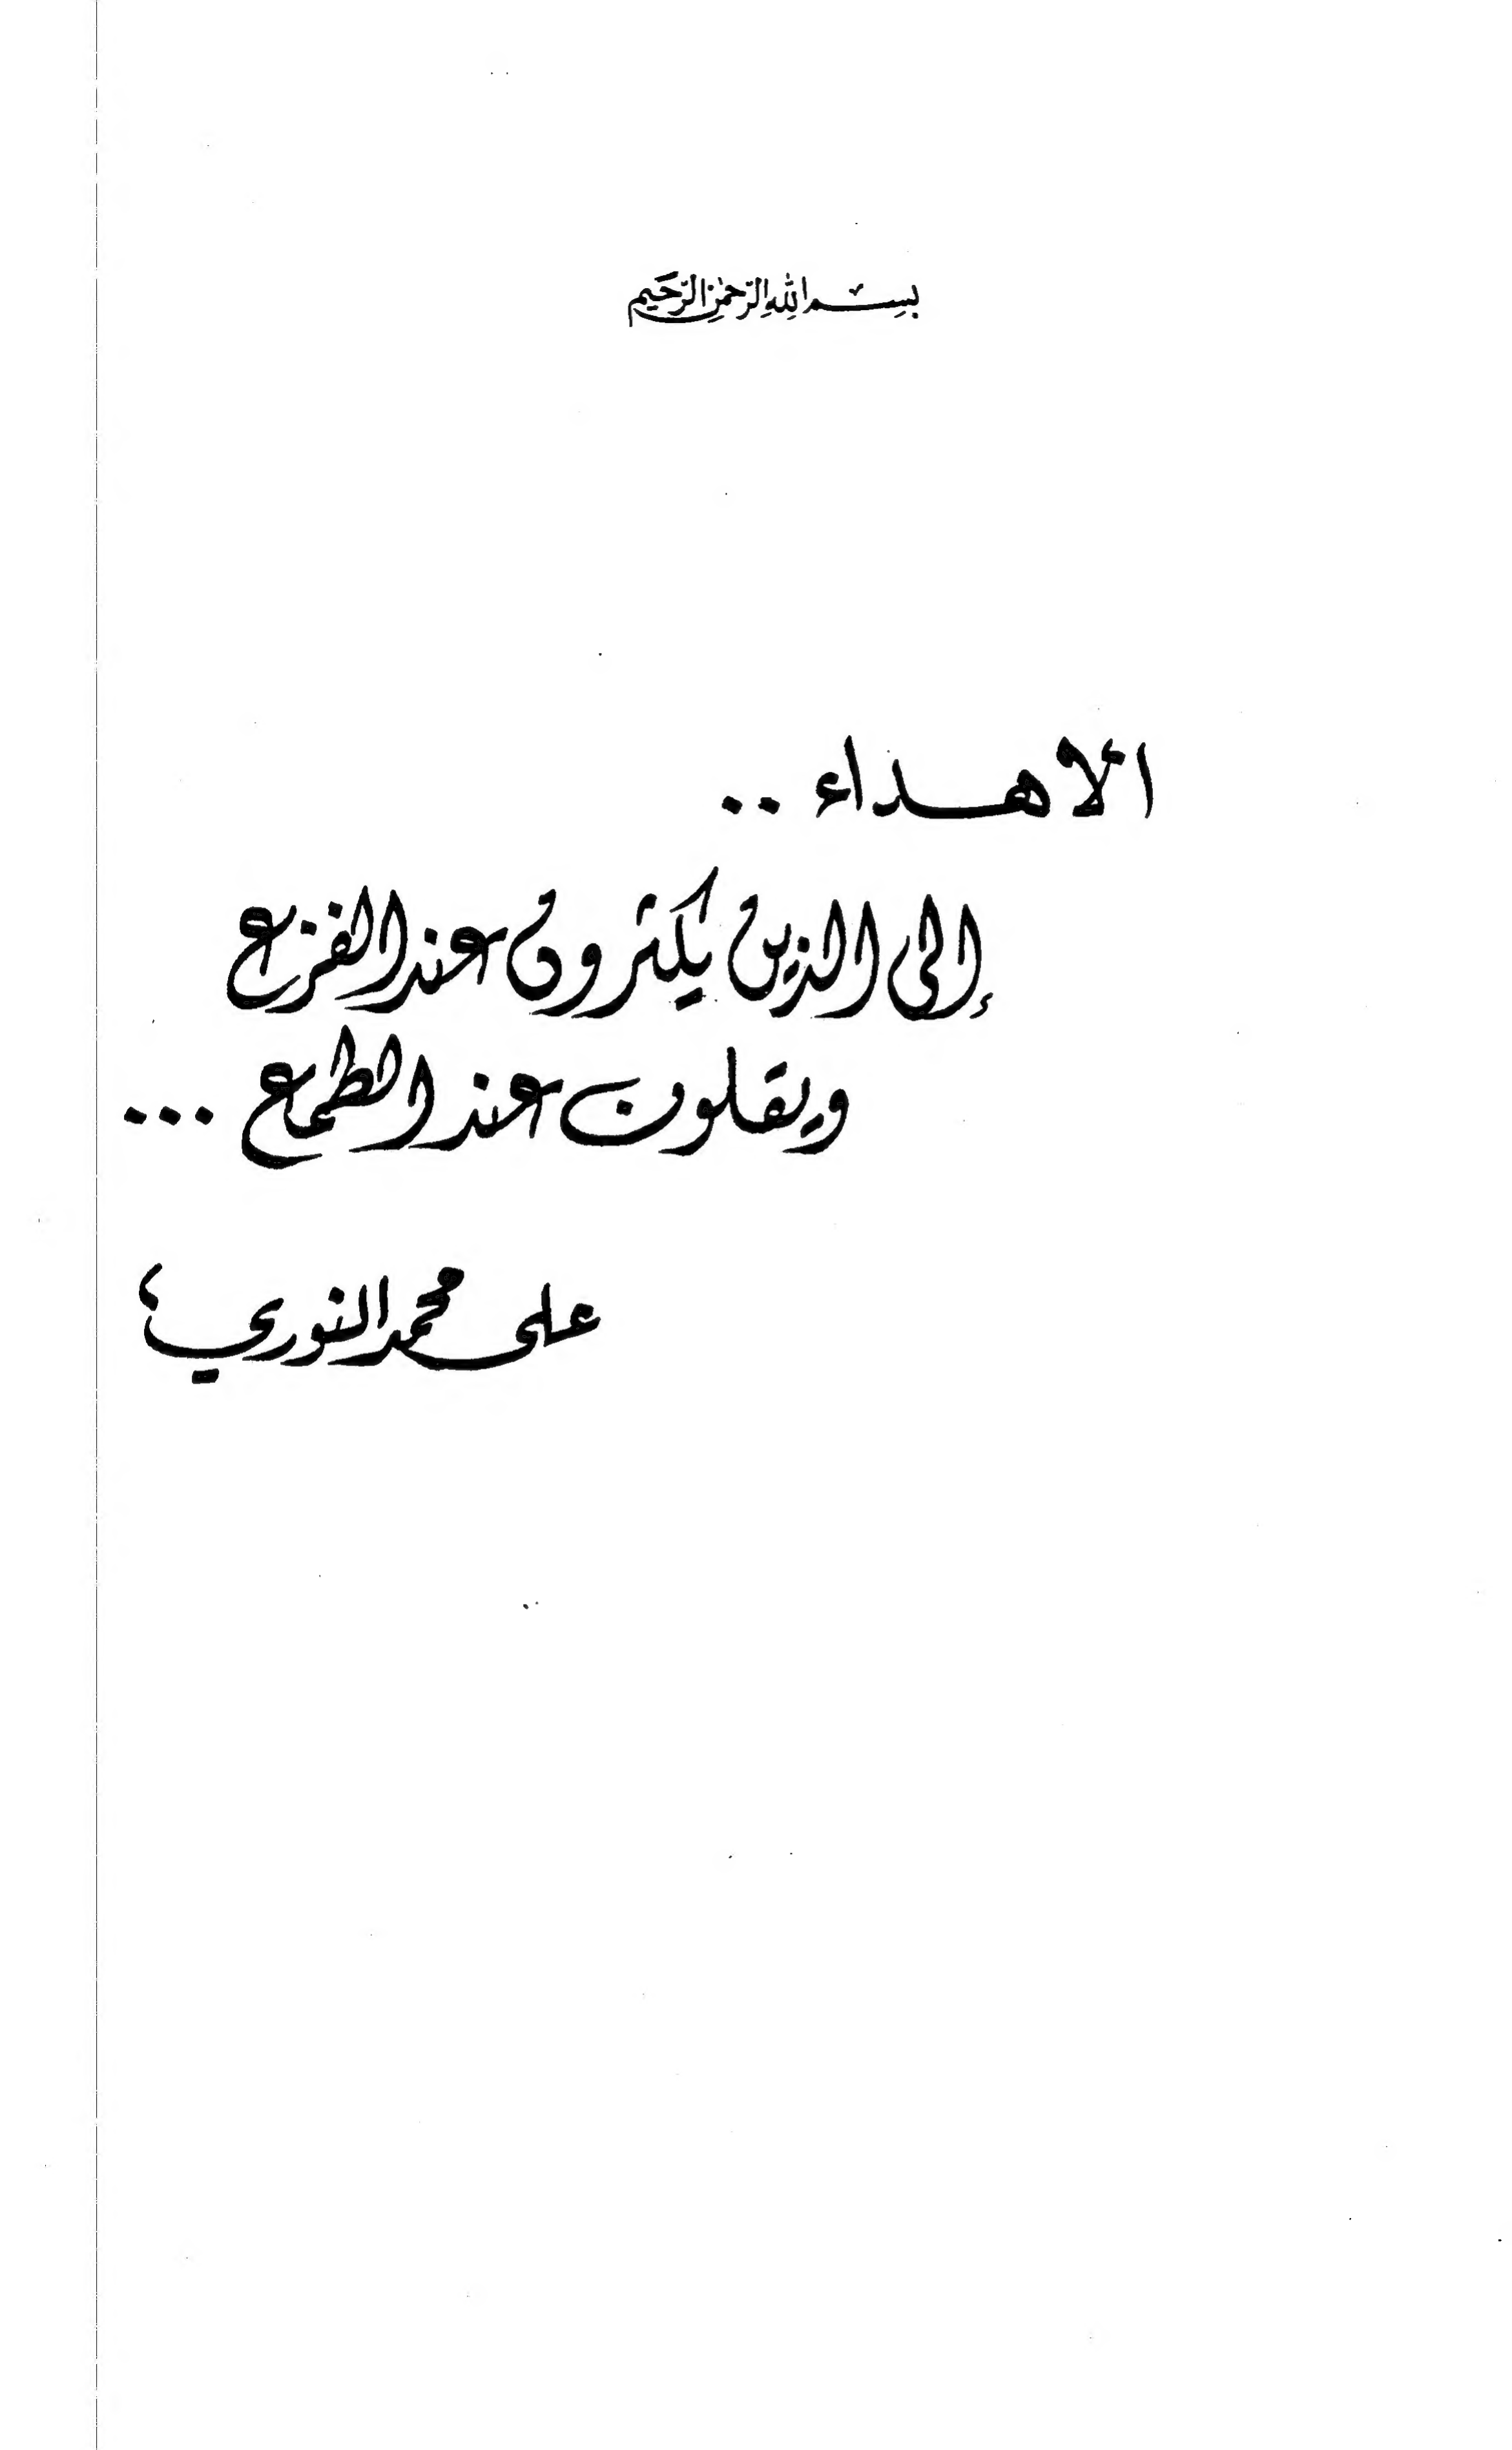 بسم الله الرحمن الرحيم
الاهداء ..
إلى الذين يكثرون عند الفزع
ويقلون عند الطمع ...
على محمد النوري